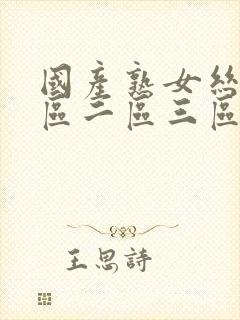 國產熟女絲
區二區三區
王思詩